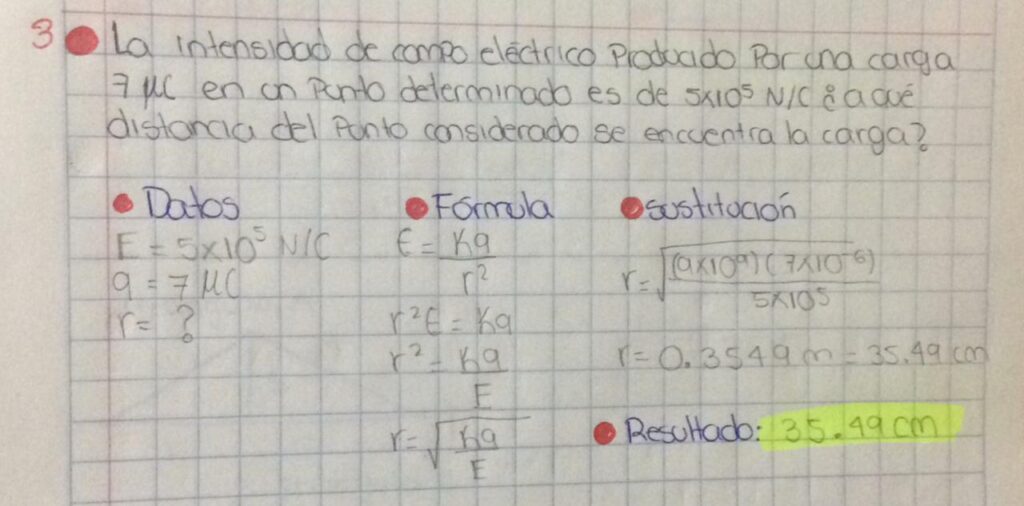 3 La intensidad de campo eléctrico Producido Por una carga
7 μC en un Punto determinado es de 5x10⁵ N/C ¿a qué
distancia del Punto considerado se encuentra la carga?
Datos
E = 5x10⁵ N/C
q = 7 μC
r = ?
Fórmula
E = Kq / r²
r²E = Kq
r² = Kq / E
r = √(Kq / E)
sustitución
r = √((9x10⁹)(7x10⁻⁶) / 5x10⁵)
r = 0.3549 m = 35.49 cm
Resultado: 35.49 cm